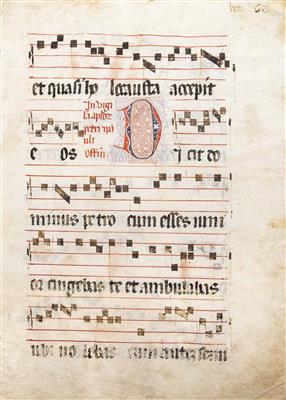 lxiii 63
et quasi ho locausta accepit
In vigi
petri
e os D i cit do
minus petro cum esses iuni
or cingebas te et ambulabas
ubi vo lebas cum autem senu